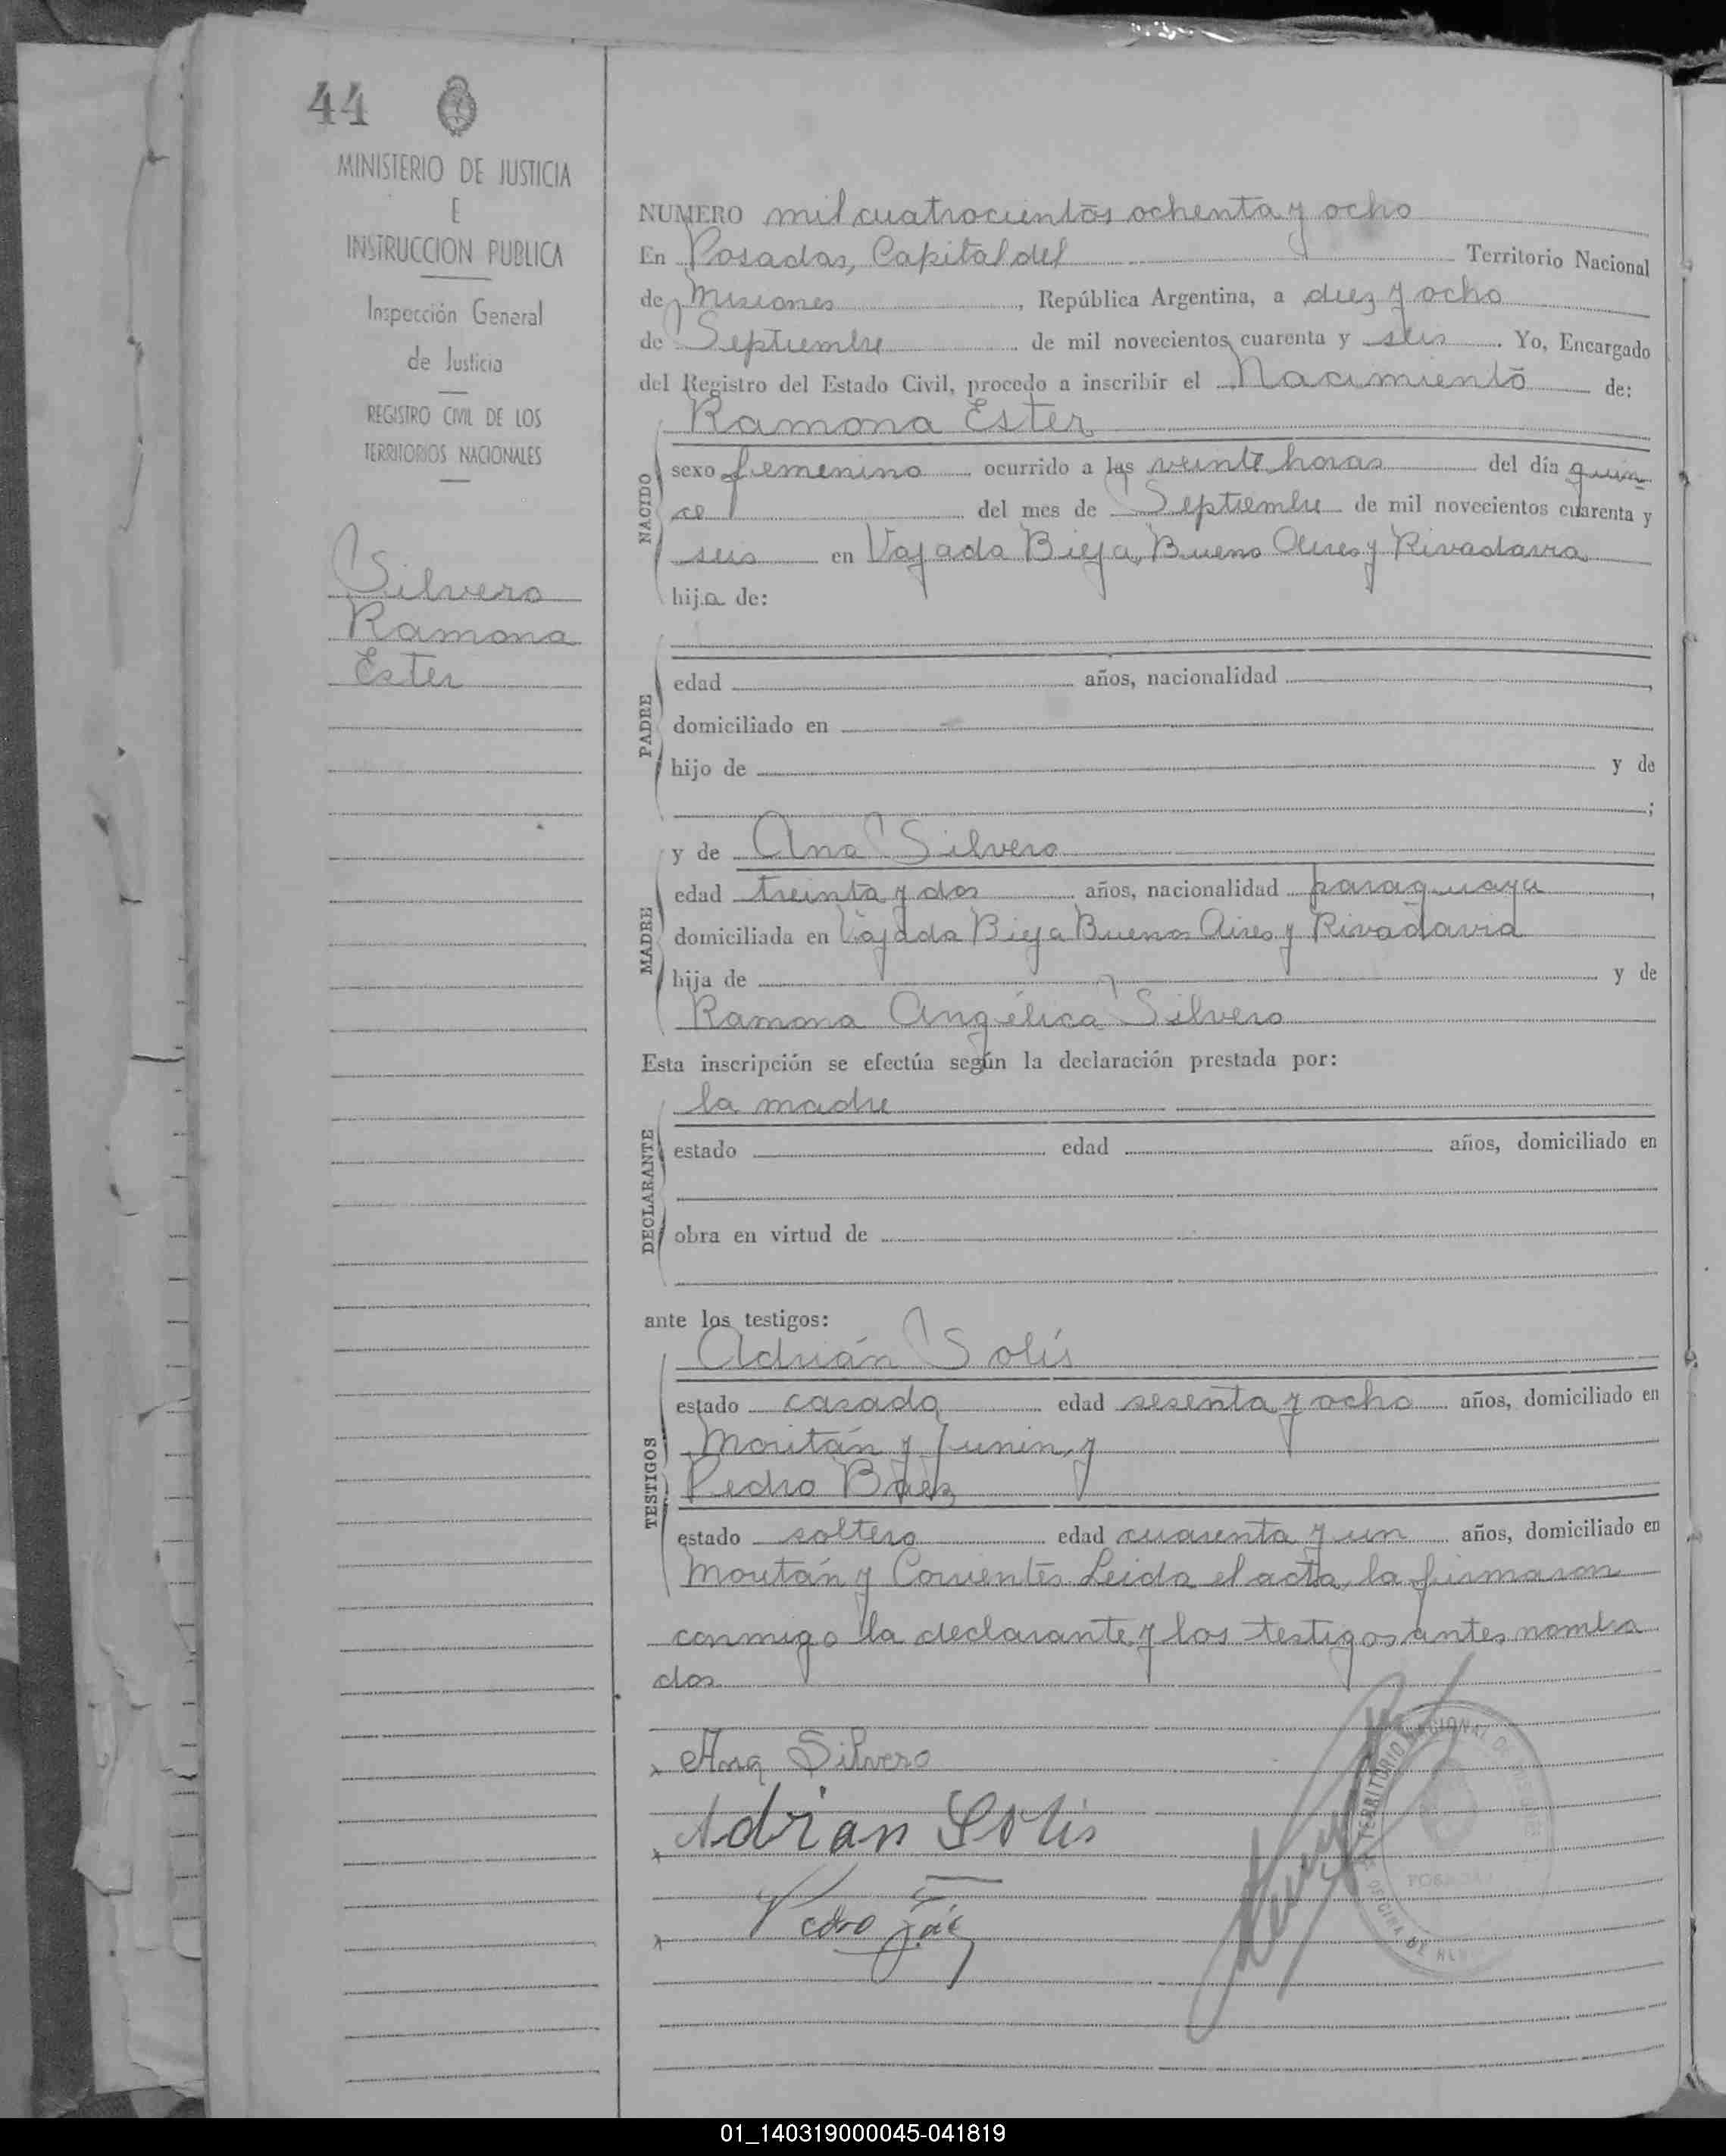 44
MINISTERIO DE JUSTICIA
E
INSTRUCCION PUBLICA
Inspección General
de Justicia
REGISTRO CIVIL DE LOS
TERRITORIOS NACIONALES
Silvero
Ramona
Ester
NUMERO mil cuatrocientos ochenta y ocho
En Posadas, Capital del Territorio Nacional
de Misiones, República Argentina, a diez y ocho
de Septiembre de mil novecientos cuarenta y seis. Yo, Encargado
del Registro del Estado Civil, procedo a inscribir el Nacimiento de:
Ramona Ester
NACIDO
sexo femenino ocurrido a las veinte horas del día quin
ce del mes de Septiembre de mil novecientos cuarenta y
seis en Vajada Bieja, Buenos Aires y Rivadavia
hija de:
PADRE
edad años, nacionalidad ,
domiciliado en
hijo de y de
;
y de Ana Silvero
MADRE
edad treinta y dos años, nacionalidad paraguaya,
domiciliada en Vajada Bieja Buenos Aires y Rivadavia
hija de y de
Ramona Angélica Silvero
Esta inscripción se efectúa según la declaración prestada por:
la madre
DECLARANTE
estado edad años, domiciliado en
obra en virtud de
ante los testigos:
Adrián Solís
TESTIGOS
estado casado edad sesenta y ocho años, domiciliado en
Moritán y Junin, y
Pedro Báez
estado soltero edad cuarenta y un años, domiciliado en
Moritán y Corrientes. Leida el acta, la firmaron
conmigo la declarante y los testigos antes nombra
dos
x Ana Silvero
x Adrian Solis
x Pedro
TERRITORIO NACIONAL DE MISIONES
POSADAS
OFICINA DE
01_140319000045-041819